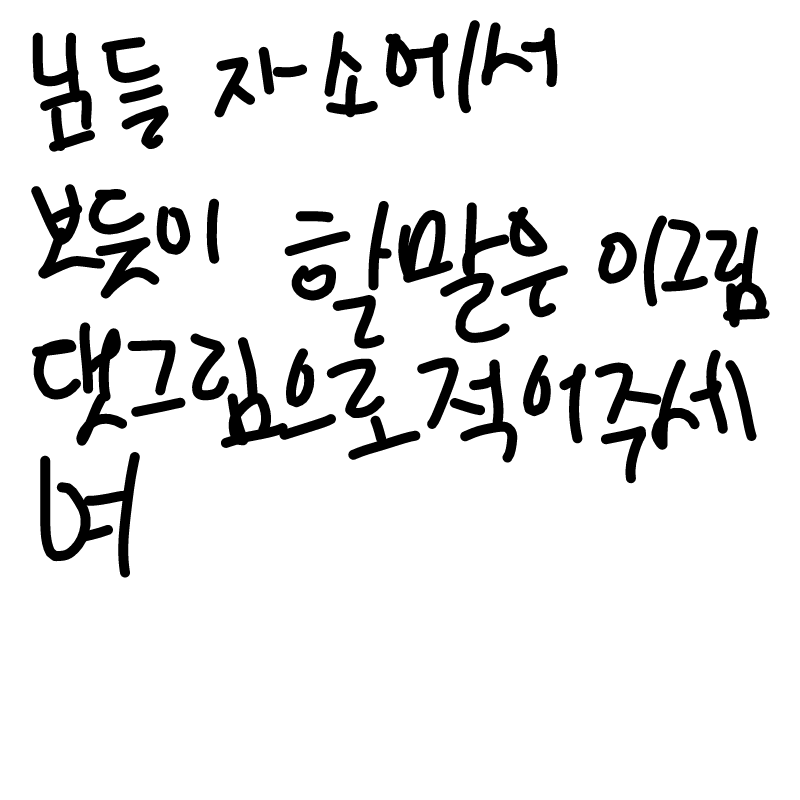 님들 자소에서
보듯이 할말은 이그림
댓그림으로 적어주세
여